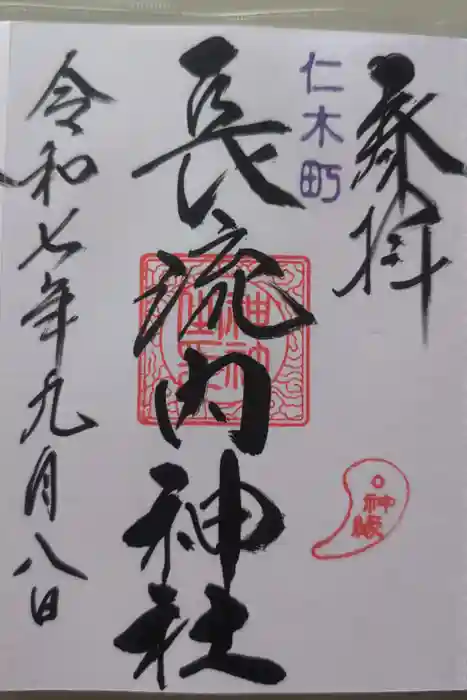 奉拝
仁木町
長流内神社
令和七年九月八日
神縁